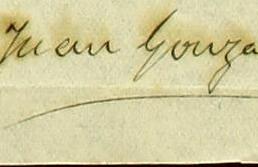 Juan Gonza